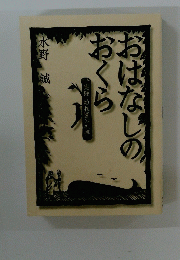 おはなしの
おくら
水野 誠